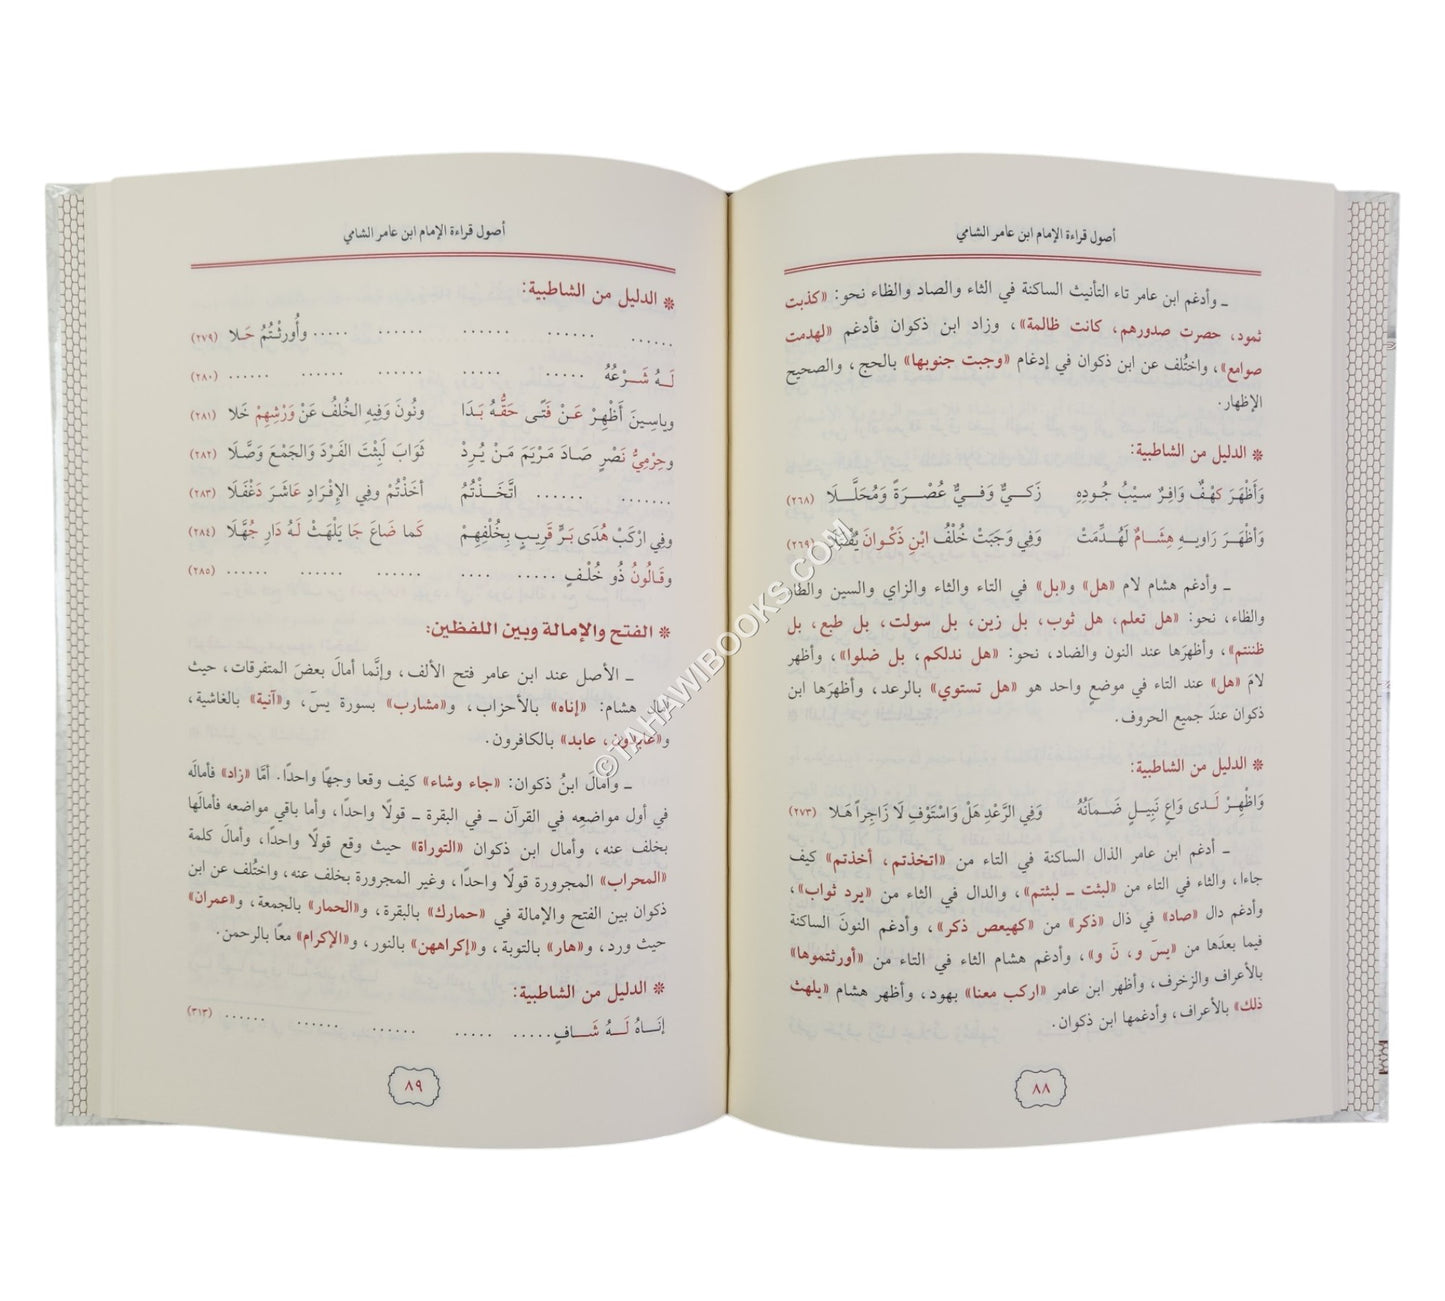 أصول قراءة الإمام ابن عامر الشامي
ـ وأدغم ابن عامر تاء التأنيث الساكنة في الثاء والصاد والظاء نحو: «كذبت
ثمود، حصرت صدورهم، كانت ظالمة»، وزاد ابن ذكوان فأدغم «لهدمت
صوامع»، واختُلف عن ابن ذكوان في إدغام «وجبت جنوبها» بالحج، والصحيح
الإظهار.
* الدليل من الشاطبية:
وَأَظْهَرَ كَهْفٌ وَافِرٌ سيْبُ جُودِهِ زَكـيٌّ وَفـيٌّ عُصْـرَةً وَمُحَلَّـلَا (٢٦٨)
وَأَظْهَـرَ رَاوِيـهِ هِشَـامٌ لَهُـدِّمَتْ وَفِي وَجَبَتْ خُلْفُ ابْنِ ذَكْـوَانَ يُفْتَلَا (٢٦٩)
ـ وأدغم هشام لام «هل» و«بل» في التاء والثاء والزاي والسين والطاء
والظاء، نحو: «هل تعلم، هل ثوب، بل زين، بل سولت، بل طبع، بل
ظننتم»، وأظهرَها عند النون والضاد، نحو: «هل ندلكم، بل ضلوا»، وأظهر
لامَ «هل» عند التاء في موضعٍ واحد هو «هل تستوي» بالرعد، وأظهرَها ابن
ذكوان عندَ جميع الحروف.
* الدليل من الشاطبية:
وَاظْهِـرْ لَـدى وَاعٍ نَبِيـلٍ ضَـمانُهُ وَفِي الرَّعْدِ هَلْ وَاسْتَوْفِ لَا زَاجِراً هَلا (٢٧٣)
ـ أدغم ابن عامر الذال الساكنة في التاء من «اتخذتم، أخذتم» كيف
جاءا، والثاء في التاء من «لبثت ـ لبثتم»، والدال في الثاء من «يرد ثواب»،
وأدغم دال «صاد» في ذال «ذكر» من «كهيعص ذكر»، وأدغم النونَ الساكنة
فيما بعدَها من «يسٓ و، نٓ و»، وأدغم هشام الثاء في التاء من «أورثتموها»
بالأعراف والزخرف، وأظهر ابن عامر «اركب معنا» بهود، وأظهر هشام «يلهث
ذلك» بالأعراف، وأدغمها ابن ذكوان.
٨٨
أصول قراءة الإمام ابن عامر الشامي
* الدليل من الشاطبية:
...... ...... ...... ...... ..... وأُورِثْـتُمُ حَـلا (٢٧٩)
لَـهُ شَـرْعُهُ ..... ..... ...... ...... ...... (٢٨٠)
وياسِينَ أَظْهِرْ عَـنْ فَتًـى حَقُّـهُ بَـدَا ونُونَ وَفِيهِ الخُلفُ عَنْ وَرْشِهِمْ خَلا (٢٨١)
وحِرْمِيُّ نَصْرٍ صَـادَ مَرْيَمَ مَـنْ يُـرِدْ ثَوَابَ لَبِثْتَ الفَرْدَ وَالجَمْعَ وَصَّلَا (٢٨٢)
....... ...... اتَّخَـذْتُمُ أخَذْتُمْ وفِي الإِفْرَادِ عَاشَرَ دَغْفَلَا (٢٨٣)
وفِي ارْكَبْ هُدَى بَـرٍّ قَرِيـبٍ بِخُلْفِهِمْ كَما ضَاعَ جَا يَلْهَثْ لَـهُ دَارِ جُهَّلَا (٢٨٤)
وقَـالُونُ ذُو خُلْـفٍ ..... .... ...... ...... ...... (٢٨٥)
* الفتح والإمالة وبين اللفظين:
ـ الأصل عند ابن عامر فتح الألف، وإنَّما أمالَ بعضَ المتفرقات، حيث
أمال هشام: «إناه» بالأحزاب، و«مشارب» بسورة يسٓ، و«آنية» بالغاشية،
و«عابدون، عابد» بالكافرون.
ـ وأمالَ ابنُ ذكوان: «جاء وشاء» كيف وقعا وجهًا واحدًا. أمَّا «زاد» فأمالَه
في أول مواضعِه في القرآن ـ في البقرة ـ قولًا واحدًا، وأما باقي مواضعه فأمالَها
بخلف عنه، وأمال ابن ذكوان «التوراة» حيث وقع قولًا واحدًا، وأمالَ كلمة
«المحراب» المجرورة قولًا واحدًا، وغير المجرورة بخلف عنه، واختُلف عن ابن
ذكوان بين الفتح والإمالة في «حمارك» بالبقرة، و«الحمار» بالجمعة، و«عمران»
حيث ورد، و«هار» بالتوبة، و«إكراههن» بالنور، و«الإكرام» معًا بالرحمن.
* الدليل من الشاطبية:
إنَـاهُ لَـهُ شَـافٍ ..... ..... ...... ...... ...... (٣١٣)
٨٩
©TAHAWIBOOKS.COM